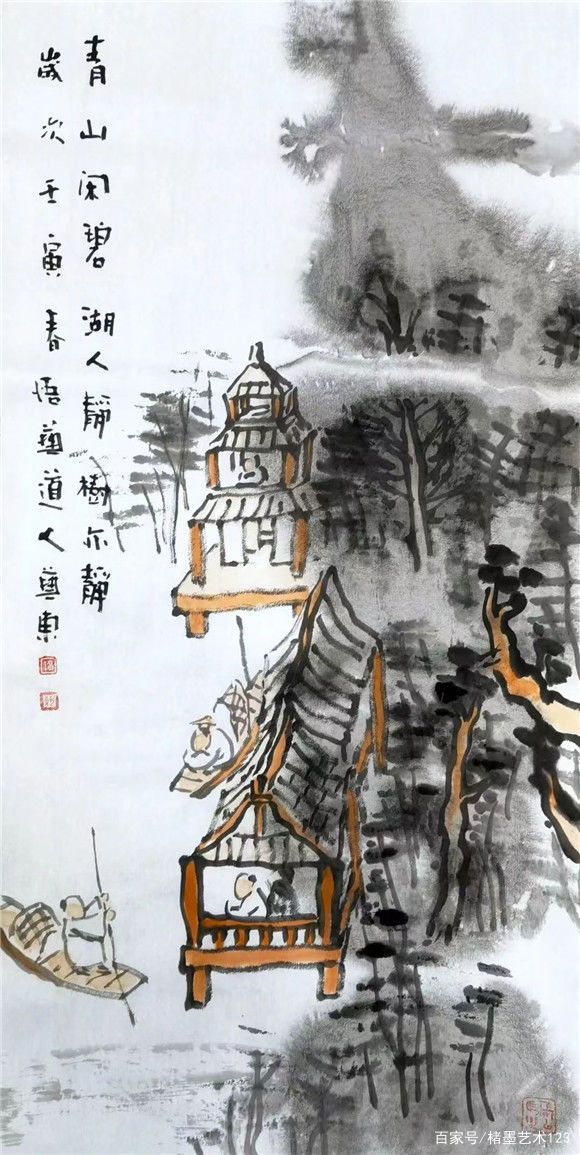 青山闲碧湖人静樹亦靜
歲次壬寅春悟藝道人藝東
百家号/楮墨艺术123